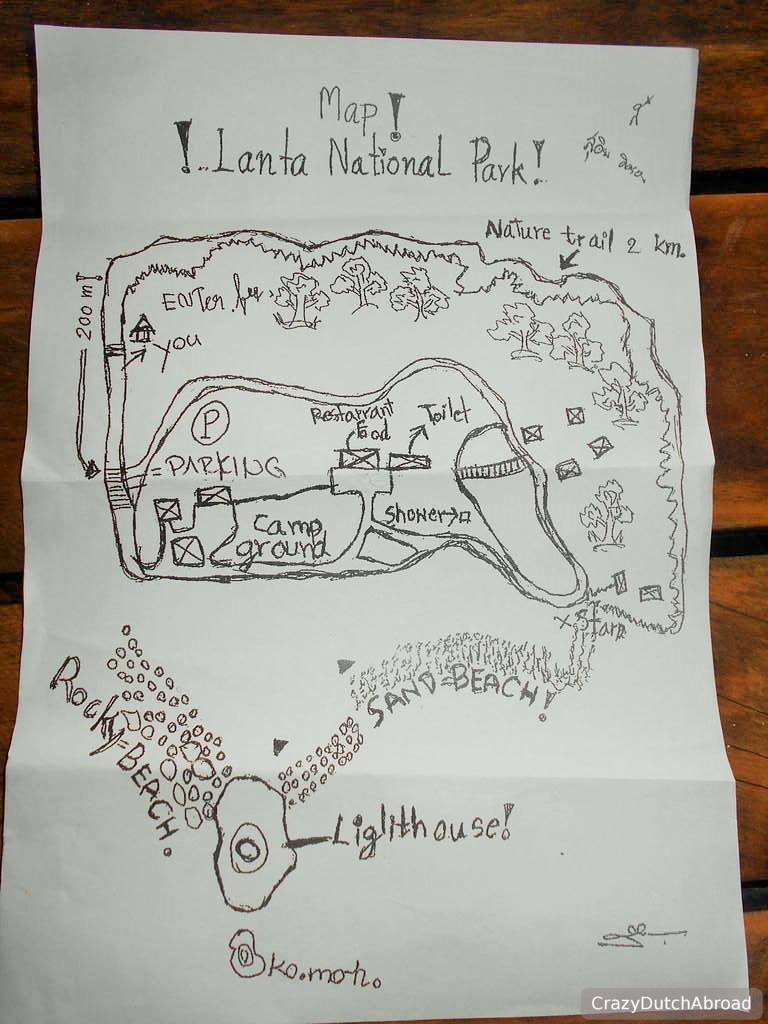 Map!
!..Lanta National Park!
Nature trail 2 km.
200 m!
ENTer.
YOU
P
Restarrant
Food
Toilet
=PARKING
Camp
ground
Shower
x Starp
SAND=BEACH!
Rocky=BEACH.
Liglithouse!
Ko.mo-h.
CrazyDutchAbroad